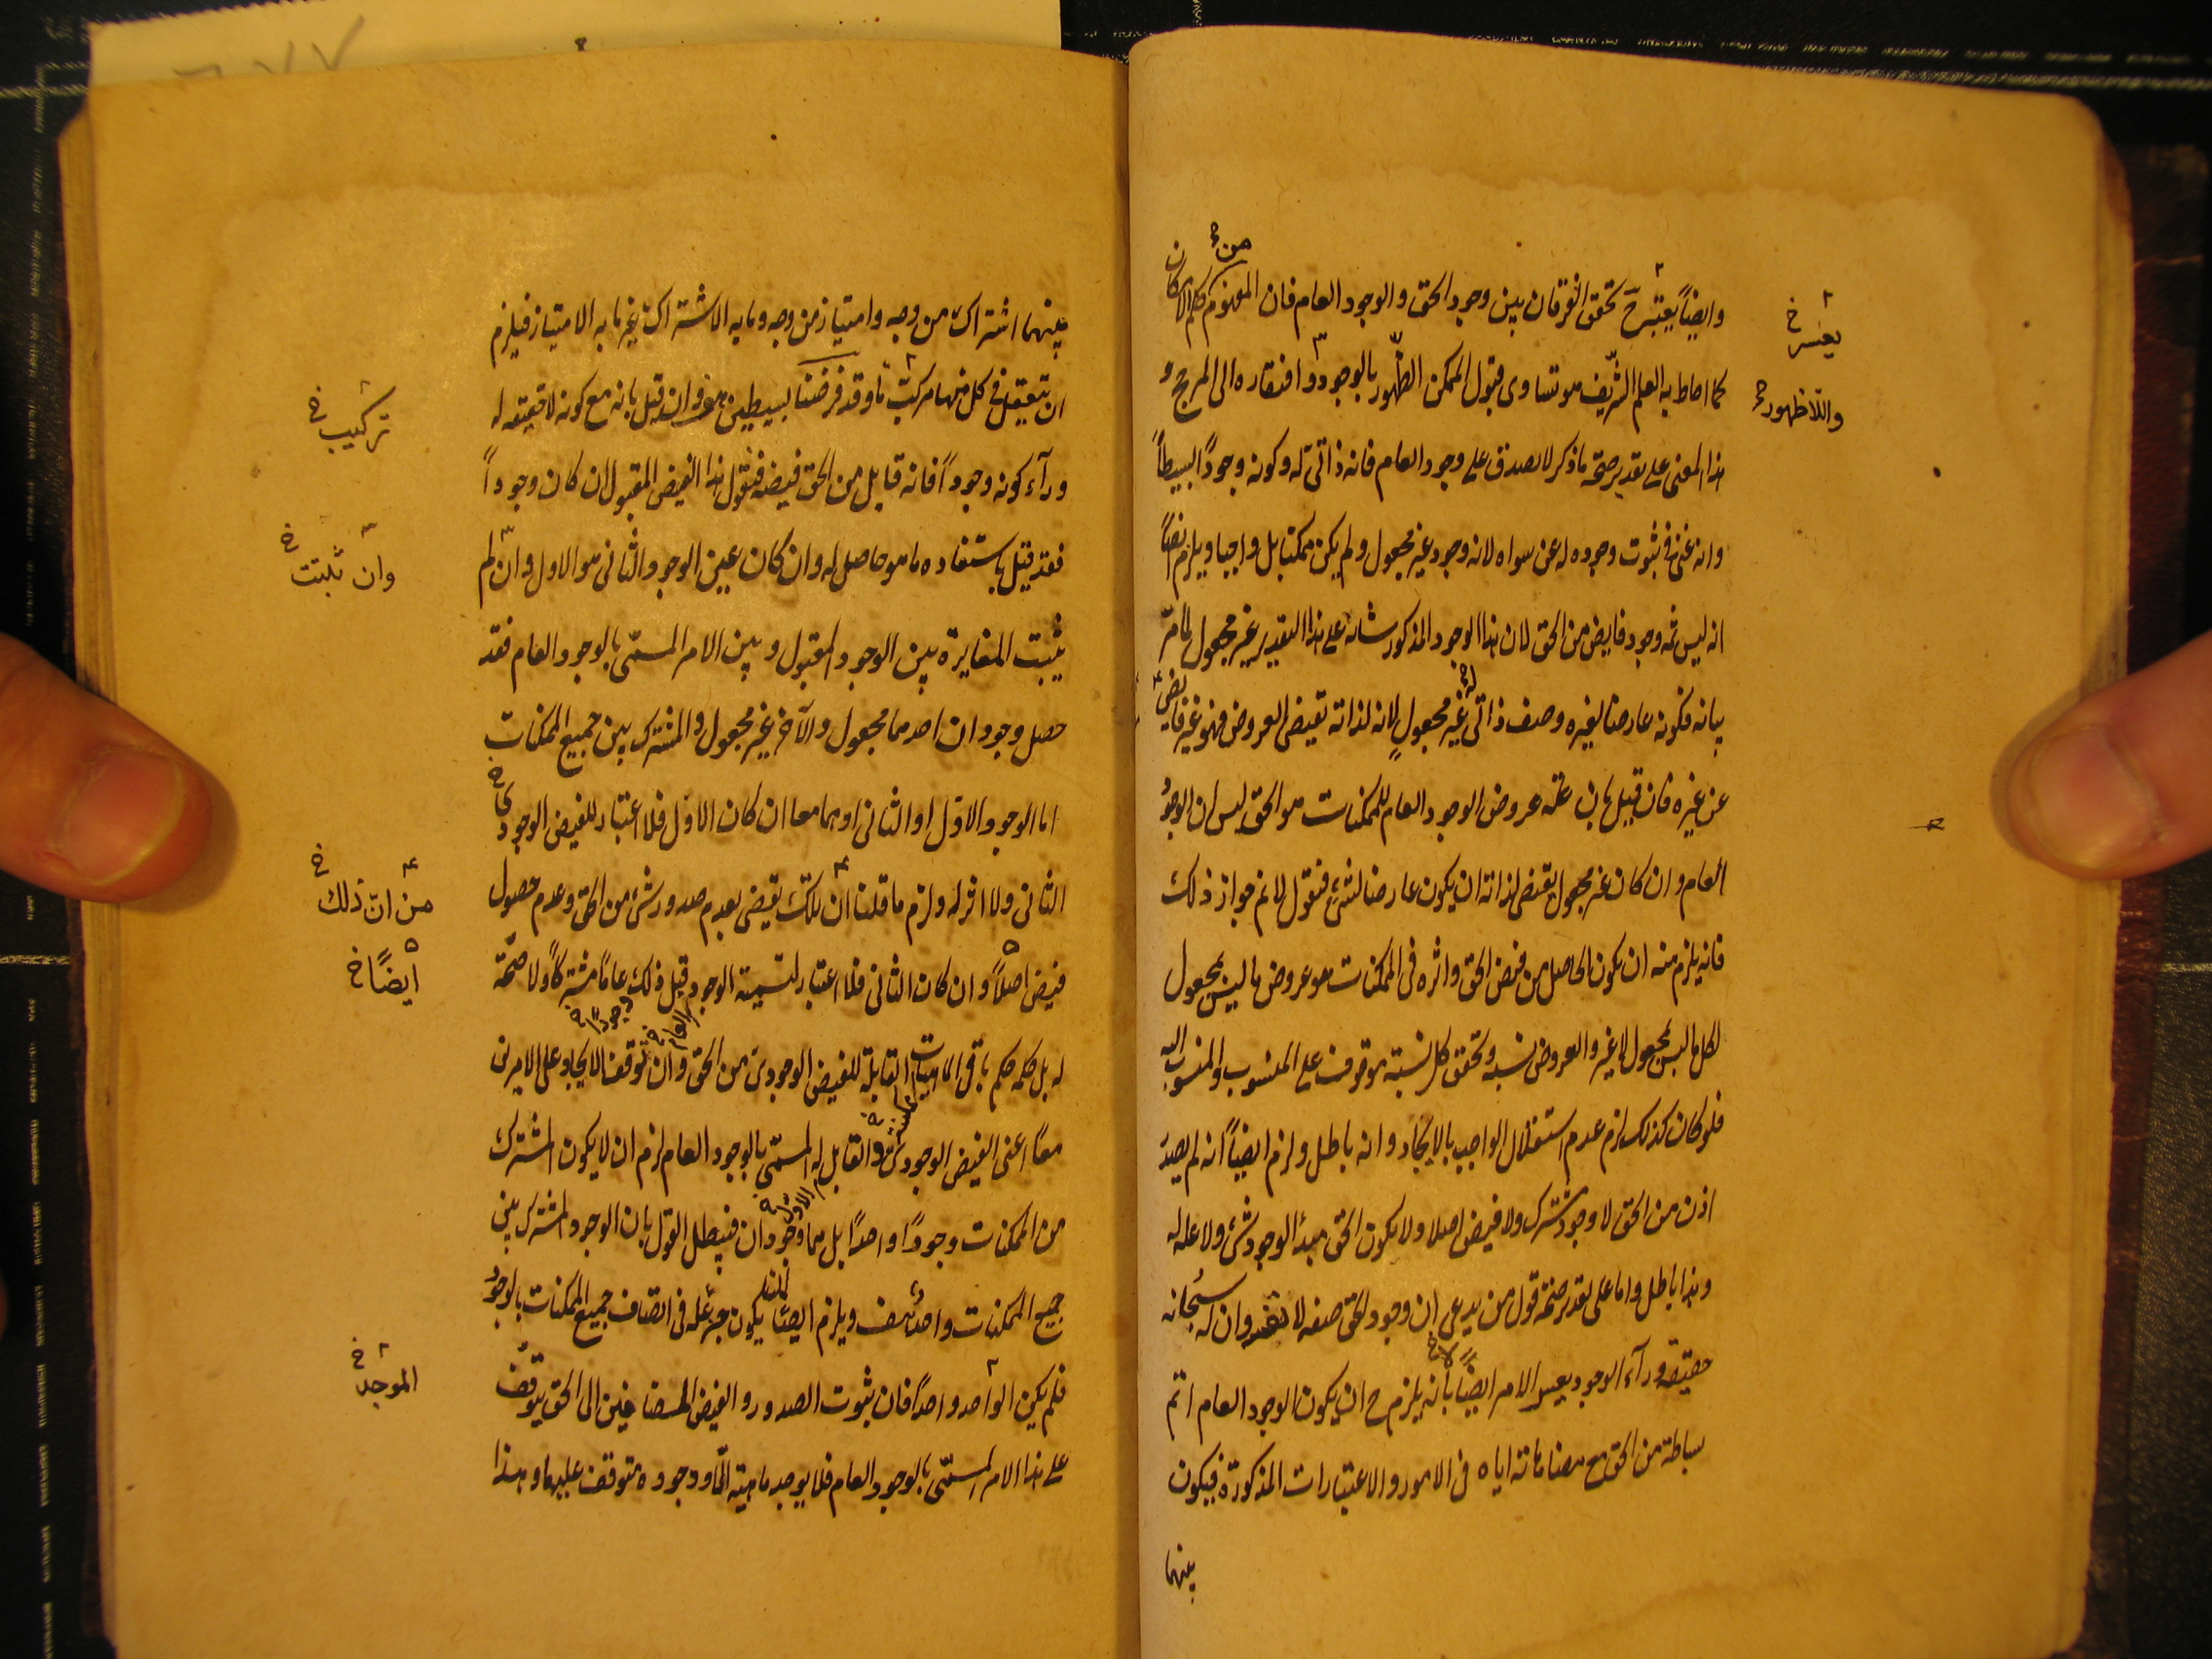 وايضاً يعتبر ح تحقق الفرقان بين وجود الحق والوجود العام فان المفهوم من حكم الامكان
كما احاط به العلم الشريف هو تساوى قبول الممكن الظهور بالوجود وافتقاره الى المرجح و
هذا المعنى على تقدير صحة ما ذكر لا يصدق على وجود العام فانه ذاتى له وكونه وجوداً بسيطاً
وانه غنى فى ثبوت وجوده له عن سواه لانه وجود غير مجعول ولم يكن ممكنا بل واجبا ويلزم ايضاً
انه ليس ثمه وجود فايض من الحق لان هذا الوجود المذكور شانه على هذا التقدير غير مجعول لما مرّ
بيانه فكونه عارضا لغيره وصف ذاتى له غير مجعول لانه لذاته تقتضى العروض فهو غير فايض
عن غيره فان قيل بان علة عروض الوجود العام للممكنات هو الحق ليس ان الوجود
العام وان كان غير مجعول يقتضى لذاته ان يكون عارضا لشئ فنقول لا نم جواز ذلك
فانه يلزم منه ان يكون الحاصل من فيض الحق واثره فى الممكنات هو عروض ما ليس بمجعول
لكل ما ليس بمجعول لا غير والعروض نسبة وتحقق كل نسبة موقوف على المنسوب والمنسوب اليه
فلو كان كذلك لزم عدم استقلال الواجب بالايجاد وانه باطل ولزم ايضاً انه لم يصدر
اذن من الحق لا وجود مشترك ولا فيض اصلا ولا يكون الحق مبدأ لوجود شئ ولا علة له
وهذا باطل واما على تقدير صحة قول من يدعى ان وجود الحق صفة لا وان له سبحانه
حقيقة وراء الوجود يعسر الامر ايضاً لانه يلزم ح ان يكون الوجود العام اتم
بساطة من الحق مع مضاهاته اياه فى الامور والاعتبارات المذكورة فيكون
بينهما
يعسر خ
واللاظهور
بينهما اشتراك من وجه وامتياز من وجه وما به الاشتراك غير ما به الامتياز فيلزم
ان يتعقل فى كل منهما مركب ما وقد فرضنا بسيطين هف وان قيل بانه مع كونه لا حقيقة له
وراء كونه وجوداً فانه قابل من الحق فيضه فنقول هذا الفيض المقبول ان كان وجوداً
فقد قيل باستفاده ما هو حاصل له وان كان عين الوجود الثانى هو الاول وان لم
يثبت المغايرة بين الوجود المقبول وبين الامر المسمى بالوجود العام فقد
حصل وجودان احدهما مجعول والآخر غير مجعول والمشترك بين جميع الممكنات
اما الوجود الاول او الثانى او هما معا ان كان الاول فلا اعتبار للفيض الوجودى
الثانى ولا اثر له ولزم ما قلنا ان ذلك يقتضى بعدم صدور شئ من الحق وعدم حصول
فيض اصلاً وان كان الثانى فلا اعتبار لتسمية الوجود قبل ذلك عاماً مشتركاً ولا صحة
له بل حكمه حكم باقى الماهيات القابلة للفيض الوجودى من الحق وان توقف الايجاد على الامرين
معاً اعنى الفيض الوجودى والقابل له المسمى بالوجود العام لزم ان لا يكون المشترك
من الممكنات وجوداً واحداً بل هما وجودان فيبطل القول بان الوجود المشترك بين
جميع الممكنات واحد هف ويلزم ايضا يكون جزء علة فى اتصاف جميع الممكنات بالوجود
فلم يكن الواحد واحداً فان ثبوت الصدور والفيض المضافين الى الحق يتوقف
على هذا الامر المسمى بالوجود العام فلا يوجد ماهية الا ووجوده متوقف عليهما وهذا
تركيب خ
وان ثبتت خ
من ان ذلك خ
ايضاً خ
وجوداً خ
العام خ
الاول خ
الموجد خ